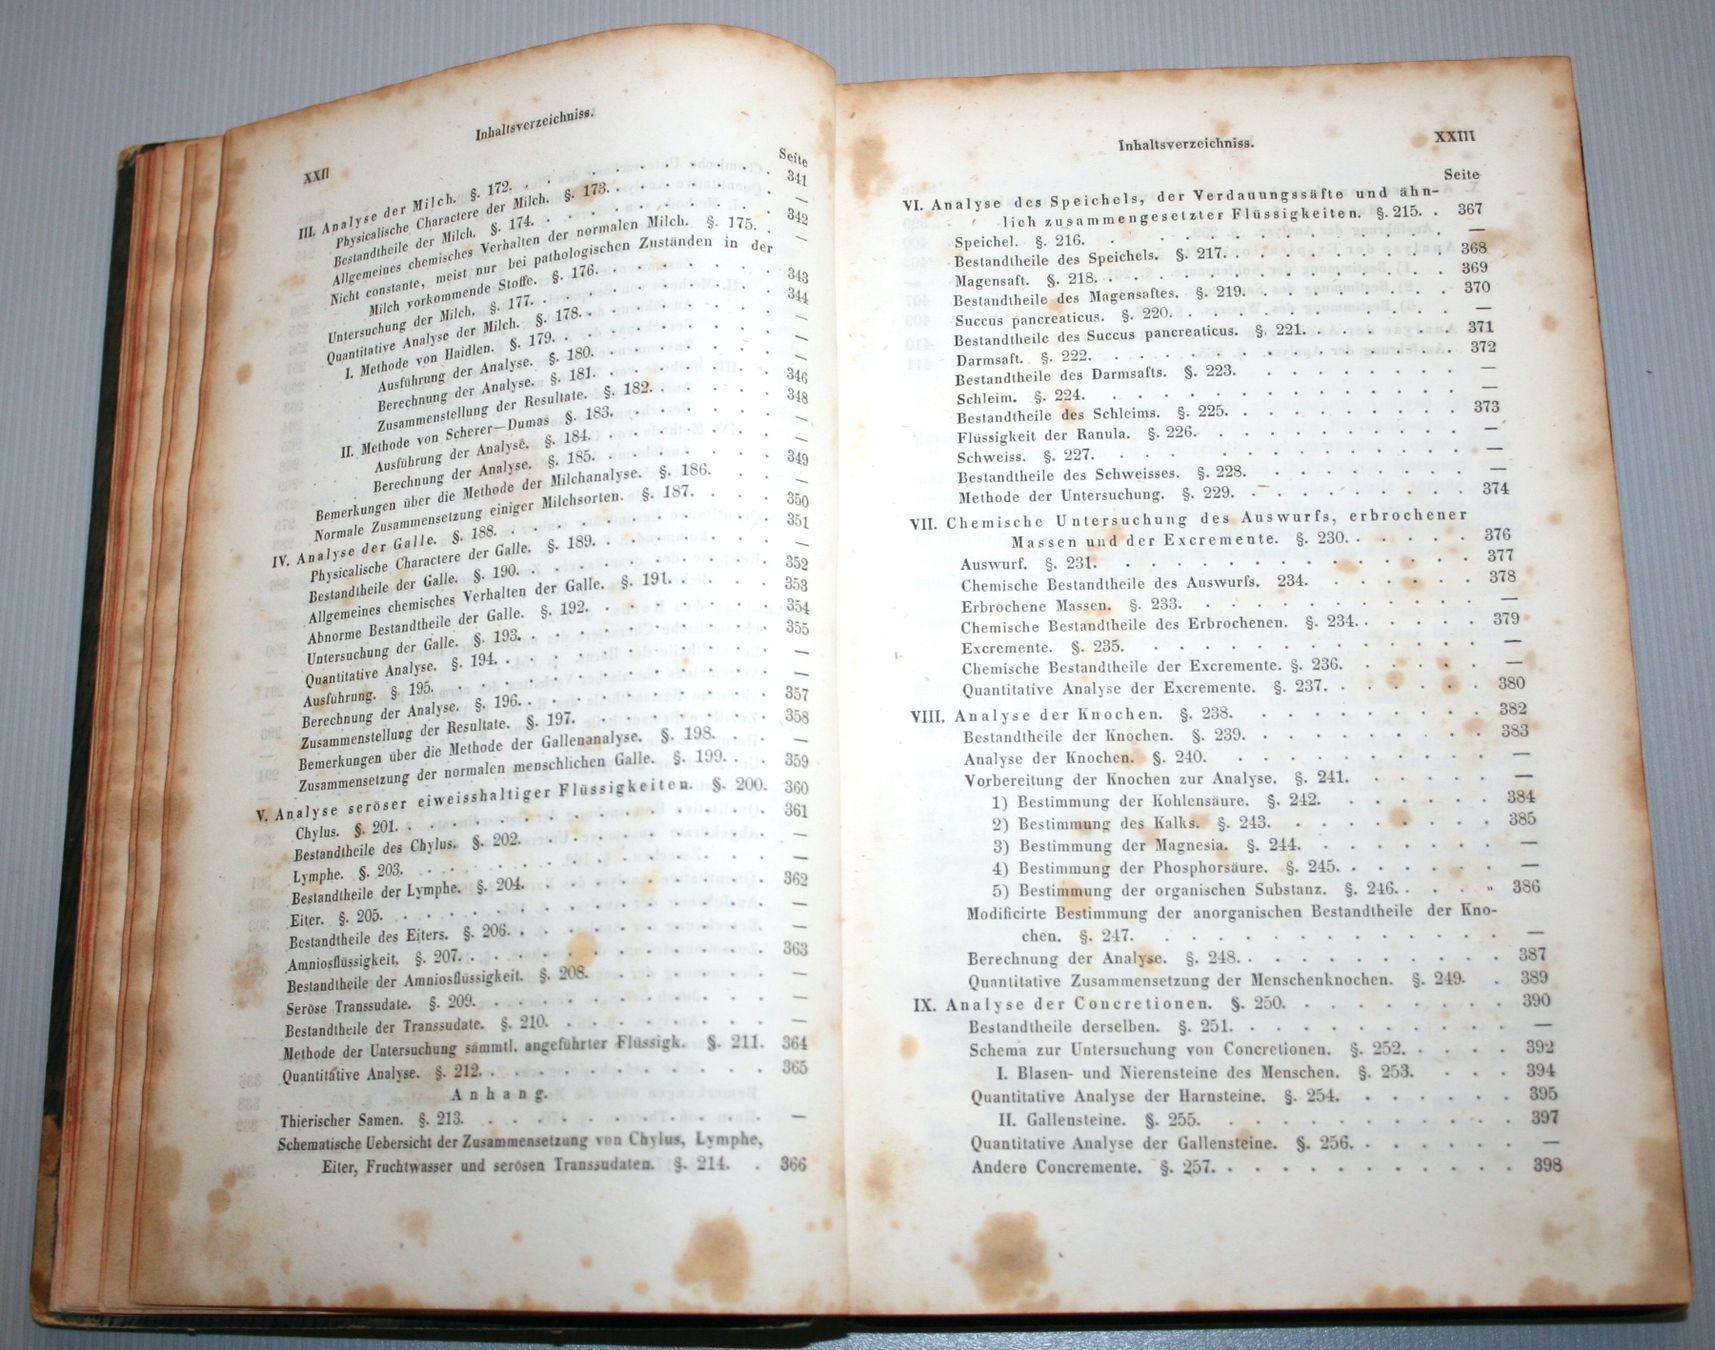 XXII
Inhaltsverzeichniss.
Seite
III. Analyse der Milch. §. 172. 341
Physicalische Charactere der Milch. §. 173. —
Bestandtheile der Milch. §. 174. 342
Allgemeines chemisches Verhalten der normalen Milch. §. 175. —
Nicht constante, meist nur bei pathologischen Zuständen in der
Milch vorkommende Stoffe. §. 176. 343
Untersuchung der Milch. §. 177. 344
Quantitative Analyse der Milch. §. 178. —
I. Methode von Haidlen. §. 179. —
Ausführung der Analyse. §. 180. —
Berechnung der Analyse. §. 181. 346
Zusammenstellung der Resultate. §. 182. 348
II. Methode von Scherer—Dumas §. 183. —
Ausführung der Analyse. §. 184. —
Berechnung der Analyse. §. 185. 349
Bemerkungen über die Methode der Milchanalyse. §. 186. —
Normale Zusammensetzung einiger Milchsorten. §. 187. 350
IV. Analyse der Galle. §. 188. 351
Physicalische Charactere der Galle. §. 189. —
Bestandtheile der Galle. §. 190. 352
Allgemeines chemisches Verhalten der Galle. §. 191. 353
Abnorme Bestandtheile der Galle. §. 192. 354
Untersuchung der Galle. §. 193. 355
Quantitative Analyse. §. 194. —
Ausführung. §. 195. —
Berechnung der Analyse. §. 196. 357
Zusammenstellung der Resultate. §. 197. 358
Bemerkungen über die Methode der Gallenanalyse. §. 198. —
Zusammensetzung der normalen menschlichen Galle. §. 199. 359
V. Analyse seröser eiweisshaltiger Flüssigkeiten. §. 200. 360
Chylus. §. 201. 361
Bestandtheile des Chylus. §. 202. —
Lymphe. §. 203. —
Bestandtheile der Lymphe. §. 204. 362
Eiter. §. 205. —
Bestandtheile des Eiters. §. 206. —
Amniosflüssigkeit, §. 207. 363
Bestandtheile der Amniosflüssigkeit. §. 208. —
Seröse Transsudate. §. 209. —
Bestandtheile der Transsudate. §. 210. —
Methode der Untersuchung sämmtl. angeführter Flüssigk. §. 211. 364
Quantitative Analyse. §. 212. 365
Anhang.
Thierischer Samen. §. 213. —
Schematische Uebersicht der Zusammensetzung von Chylus, Lymphe,
Eiter, Fruchtwasser und serösen Transsudaten. §. 214. 366
Inhaltsverzeichniss.
XXIII
Seite
VI. Analyse des Speichels, der Verdauungssäfte und ähn-
lich zusammengesetzter Flüssigkeiten. §. 215. 367
Speichel. §. 216. —
Bestandtheile des Speichels. §. 217. 368
Magensaft. §. 218. 369
Bestandtheile des Magensaftes. §. 219. 370
Succus pancreaticus. §. 220. —
Bestandtheile des Succus pancreaticus. §. 221. 371
Darmsaft. §. 222. 372
Bestandtheile des Darmsafts. §. 223. —
Schleim. §. 224. —
Bestandtheile des Schleims. §. 225. 373
Flüssigkeit der Ranula. §. 226. —
Schweiss. §. 227. —
Bestandtheile des Schweisses. §. 228. —
Methode der Untersuchung. §. 229. 374
VII. Chemische Untersuchung des Auswurfs, erbrochener
Massen und der Excremente. §. 230. 376
Auswurf. §. 231. 377
Chemische Bestandtheile des Auswurfs. 234. 378
Erbrochene Massen. §. 233. —
Chemische Bestandtheile des Erbrochenen. §. 234. 379
Excremente. §. 235. —
Chemische Bestandtheile der Excremente. §. 236. —
Quantitative Analyse der Excremente. §. 237. 380
VIII. Analyse der Knochen. §. 238. 382
Bestandtheile der Knochen. §. 239. 383
Analyse der Knochen. §. 240. —
Vorbereitung der Knochen zur Analyse. §. 241. —
1) Bestimmung der Kohlensäure. §. 242. 384
2) Bestimmung des Kalks. §. 243. 385
3) Bestimmung der Magnesia. §. 244. —
4) Bestimmung der Phosphorsäure. §. 245. —
5) Bestimmung der organischen Substanz. §. 246. 386
Modificirte Bestimmung der anorganischen Bestandtheile der Kno-
chen. §. 247. —
Berechnung der Analyse. §. 248. 387
Quantitative Zusammensetzung der Menschenknochen. §. 249. 389
IX. Analyse der Concretionen. §. 250. 390
Bestandtheile derselben. §. 251. —
Schema zur Untersuchung von Concretionen. §. 252. 392
I. Blasen- und Nierensteine des Menschen. §. 253. 394
Quantitative Analyse der Harnsteine. §. 254. 395
II. Gallensteine. §. 255. 397
Quantitative Analyse der Gallensteine. §. 256. —
Andere Concremente. §. 257. 398